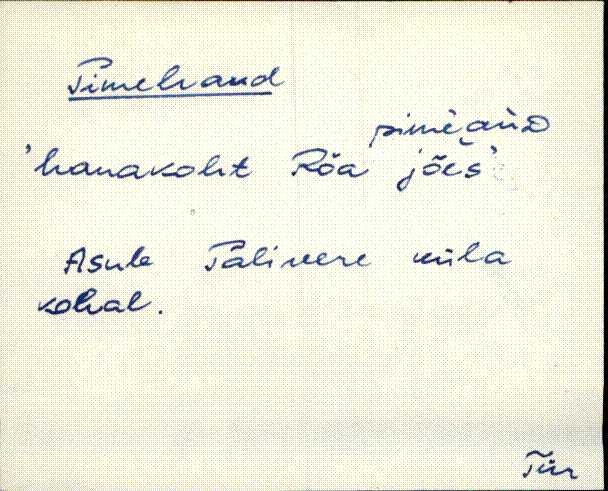 Pimehaud
pimèaùD
'hauakoht Rõa jões'
Asub Palivere küla
kohal.
Tür